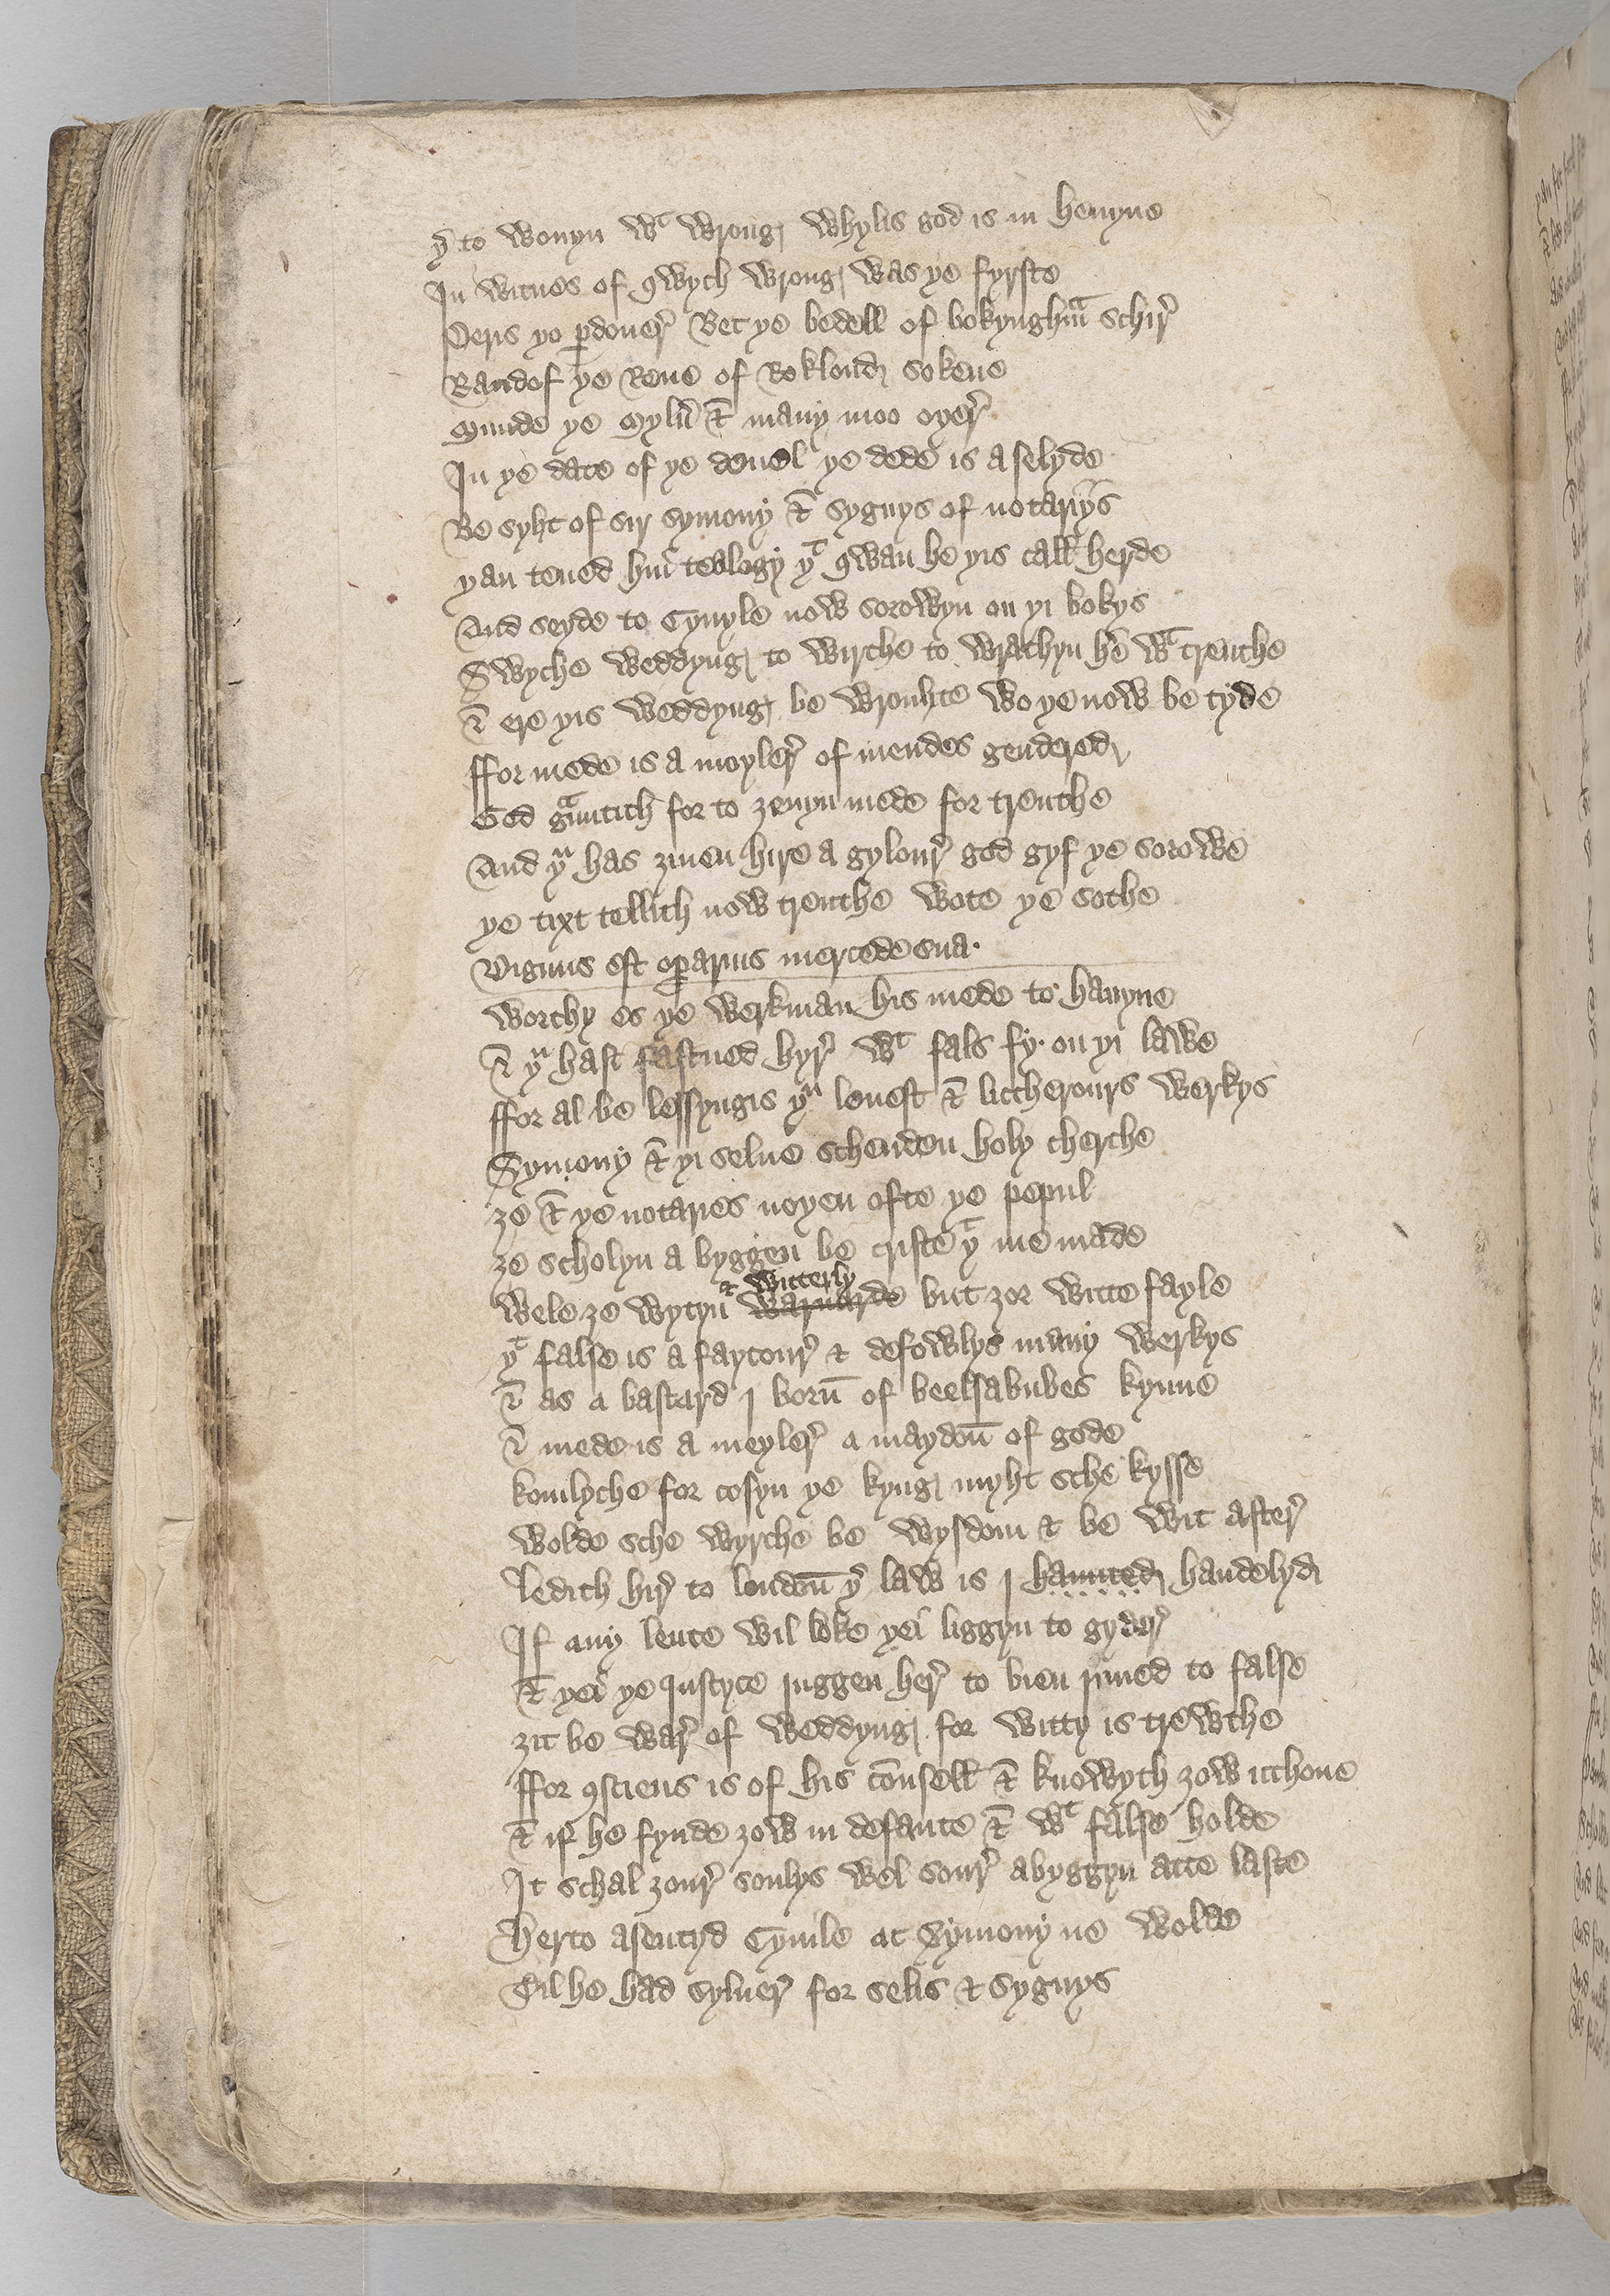 yͬ to wonyn wᵗ wrong whylis god is in heuyne
In witnes of qwych wrong was ye fyrste
Peris ye ꝑdoner̕ Bet ye bedell of bokynghmᵃ schir̕
Randof ye Reue of Roklond sokene
Munde ye Myln̕ & many moo oyer̕
In ye date of ye deuel ye dede is a selyde
Be syht of sir symony & sygnys of notariys
yan tened hm̅ teology yᵗ qwan he yis call̕ herde
And seyde to Cyuyle now sorowyn on yi bokys
Swyche weddyng to wirche to wrathyn he̅ wᵗ treuthe
& ere yis weddyng be wrouhte wo ye now be tyde
ffor mede is a moyler̕ of mendes gendered
God gᵃuntith for to zeuyn mede for treuthe
And yᵘ has ziuen hire a gylour̕ god gyf ye sorowe
ye tixt tellith now treuthe wote ye sothe
Dignus est oꝑarius mercede sua.
worthy es ye werkman his mede to hauyne
& yᵘ hast fastned hyr̕ wᵗ fals fy. on yi lawe
ffor al be lessyngis yᵘ leuest & littherours werkys
Symony & yi selue schenden holy cherche
ze & ye notaries noyen ofte ye pepul
ze scholyn a byggen be criste yᵗ me made
wele ze wytyn & witterly warnarde but zor witte fayle
yᵗ false is a faytour̕ & defowlys many werkys
& as a bastard j born̅ of beelsabubes kynne
& mede is a meyler̕ a maydon̅ of gode
komlyche for cosyn ye kyng myht sche kysse
wolde sche wyrche be wysdom & be wit after̕
ledith hir̕ to london̅ yͬ law is j haunted handelyd
If any leute wil loke yei liggyn to gyder̕
& yei ye Iustyce iuggen her̕ to bien iuned to false
zit be war̕ of weddyng for witty is trewthe
ffor ꝯsciens is of his co̅nsell̕ & knowyth zow itchone
& if he fynde zow in defaute & wᵗ false holde
It schal zour̕ soulys wel sour̕ abyggyn atte laste
Herto asentyd Cyuile at Symony ne wolde
Til he had syluer̕ for selis & sygnys